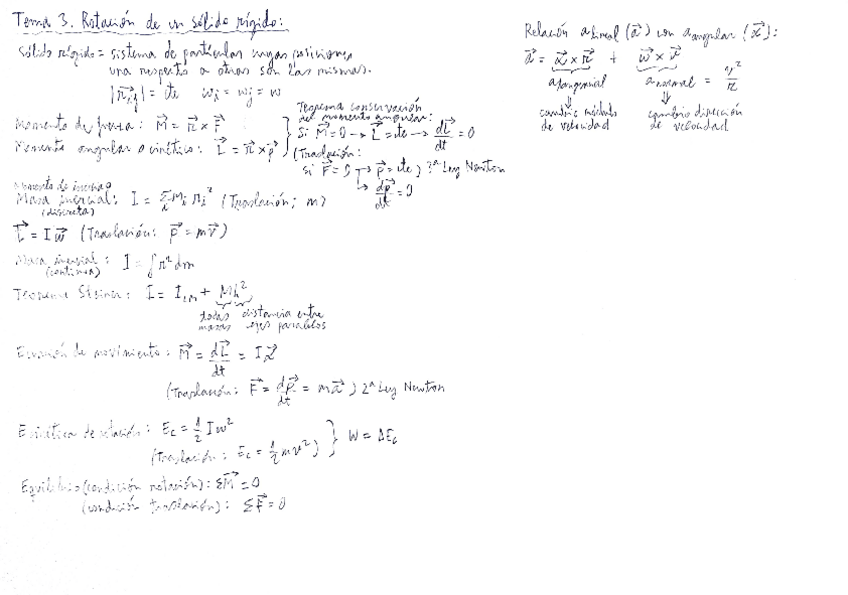 Tema 3. Rotación de un sólido rígido:
Sólido rígido = sistema de partículas cuyas posiciones
una respecto a otras son las mismas.
|r⃗ij| = cte   wi = wj = w
Momento de fuerza: M⃗ = r⃗ x F⃗
Momento angular o cinético: L⃗ = r⃗ x p⃗
Teorema conservación
del momento angular:
Si M⃗ = 0 → L⃗ = cte → dL⃗/dt = 0
(Traslación:
si F⃗ = 0 → p⃗ = cte) 1ª Ley Newton
→ dp⃗/dt = 0
Momento de inercia o
Masa inercial: I = Σ mi ri² (Traslación; m)
(discreta)
L⃗ = I w⃗ (Traslación: p⃗ = m v⃗)
Masa inercial: I = ∫ r² dm
(continua)
Teorema Steiner: I = Icm + Mh²
todas distancia entre
masas ejes paralelos
Ecuación de movimiento: M⃗ = dL⃗/dt = I α⃗
(Traslación: F⃗ = dp⃗/dt = m a⃗) 2ª Ley Newton
E cinética de rotación: Ec = 1/2 I w²
(Traslación: Ec = 1/2 m v²) } W = ΔEc
Equilibrio (condición rotación): ΣM⃗ = 0
(condición traslación): ΣF⃗ = 0
Relación a lineal (a⃗) con a angular (α⃗):
a⃗ = α⃗ x r⃗ + w⃗ x v⃗
a tangencial   a normal = v²/r
cambio módulo   cambio dirección
de velocidad   de velocidad